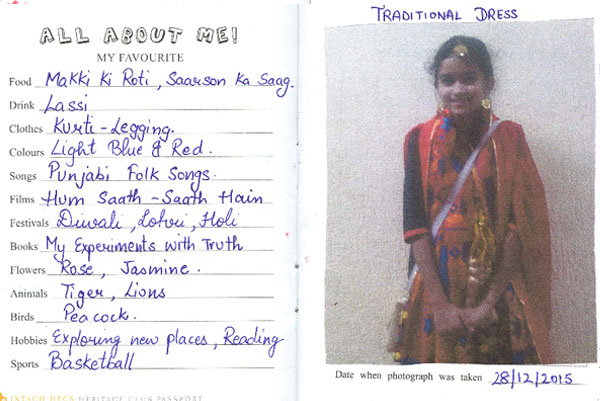 ALL ABOUT ME!
MY FAVOURITE
Food Makki Ki Roti, Saarson Ka Saag.
Drink Lassi
Clothes Kurti-Legging.
Colours Light Blue & Red.
Songs Punjabi Folk Songs.
Films Hum Saath-Saath Hain
Festivals Diwali, Lohri, Holi
Books My Experiments with Truth
Flowers Rose, Jasmine.
Animals Tiger, Lions
Birds Peacock.
Hobbies Exploring new places, Reading
Sports Basketball
INTACH HECS HERITAGE CLUB PASSPORT
TRADITIONAL DRESS
Date when photograph was taken 28/12/2015